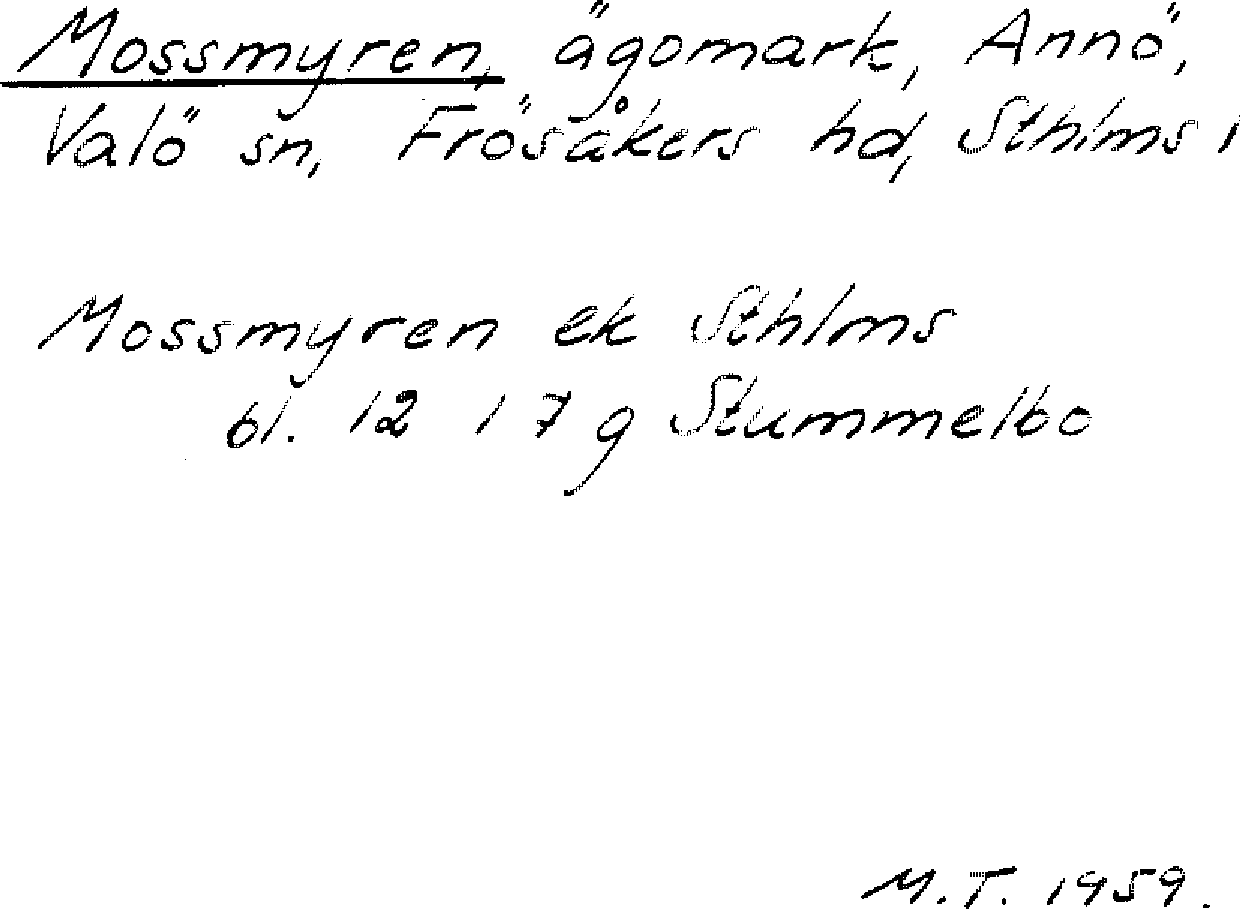 Mossmyren, ägomark, Annö,
Valö sn, Frösåkers hd, Sthlms l
Mossmyren ek Sthlms
bl. 12 i 7 g Stummelbo
M.T. 1959.